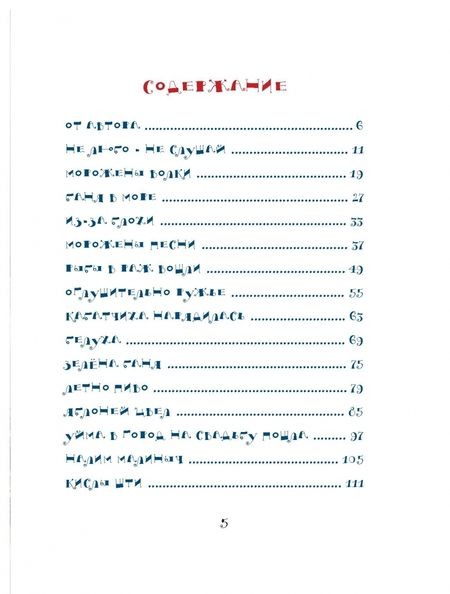 СОДЕРЖАНИЕ
ОТ АВТОРА 6
НЕ ЛЮБО - НЕ СЛУШАЙ 11
МОРОЖЕНЫ ВОЛКИ 19
БАНЯ В МОРЕ 27
ИЗ-ЗА БЛОХИ 33
МОРОЖЕНЫ ПЕСНИ 37
РЫБЫ В РАЖ ВОШЛИ 49
ОГЛУШИТЕЛЬНО РУЖЬЕ 55
НАРЯДИЛАСЬ 63
БЕЛУХА 69
ЗЕЛЁНА БАНЯ 75
ЛЕТНО ПИВО 79
ЯБЛОНЕЙ ЦВЕЛ 85
УЙМА В ГОРОД НА СВАДЬБУ ПОШЛА 97
НАЛИМ МАЛИНЫЧ 105
КИСЛЫ ШТИ 111
5